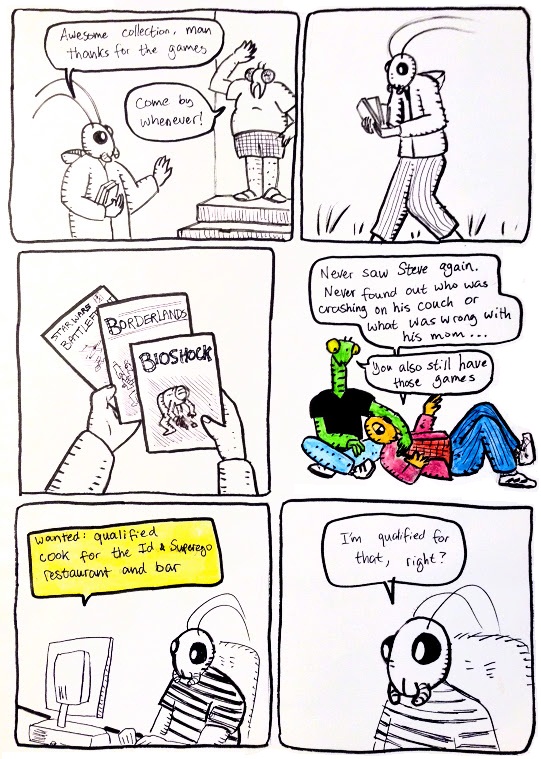 Awesome collection, man
thanks for the games
Come by
whenever!
STAR WARS
BATTLEFRONT
BORDERLANDS
BIOSHOCK
Never saw Steve again.
Never found out who was
crashing on his couch or
what was wrong with
his mom...
You also still have
those games
wanted: qualified
cook for the Id & Superego
restaurant and bar
I'm qualified for
that, right?